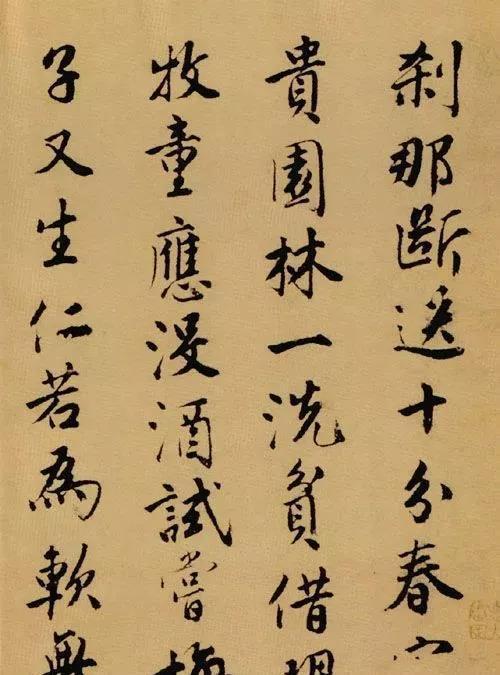 刹那斷送十分春
貴園林一洗貧借
牧童應沒酒試嘗梅
子又生仁若為軟